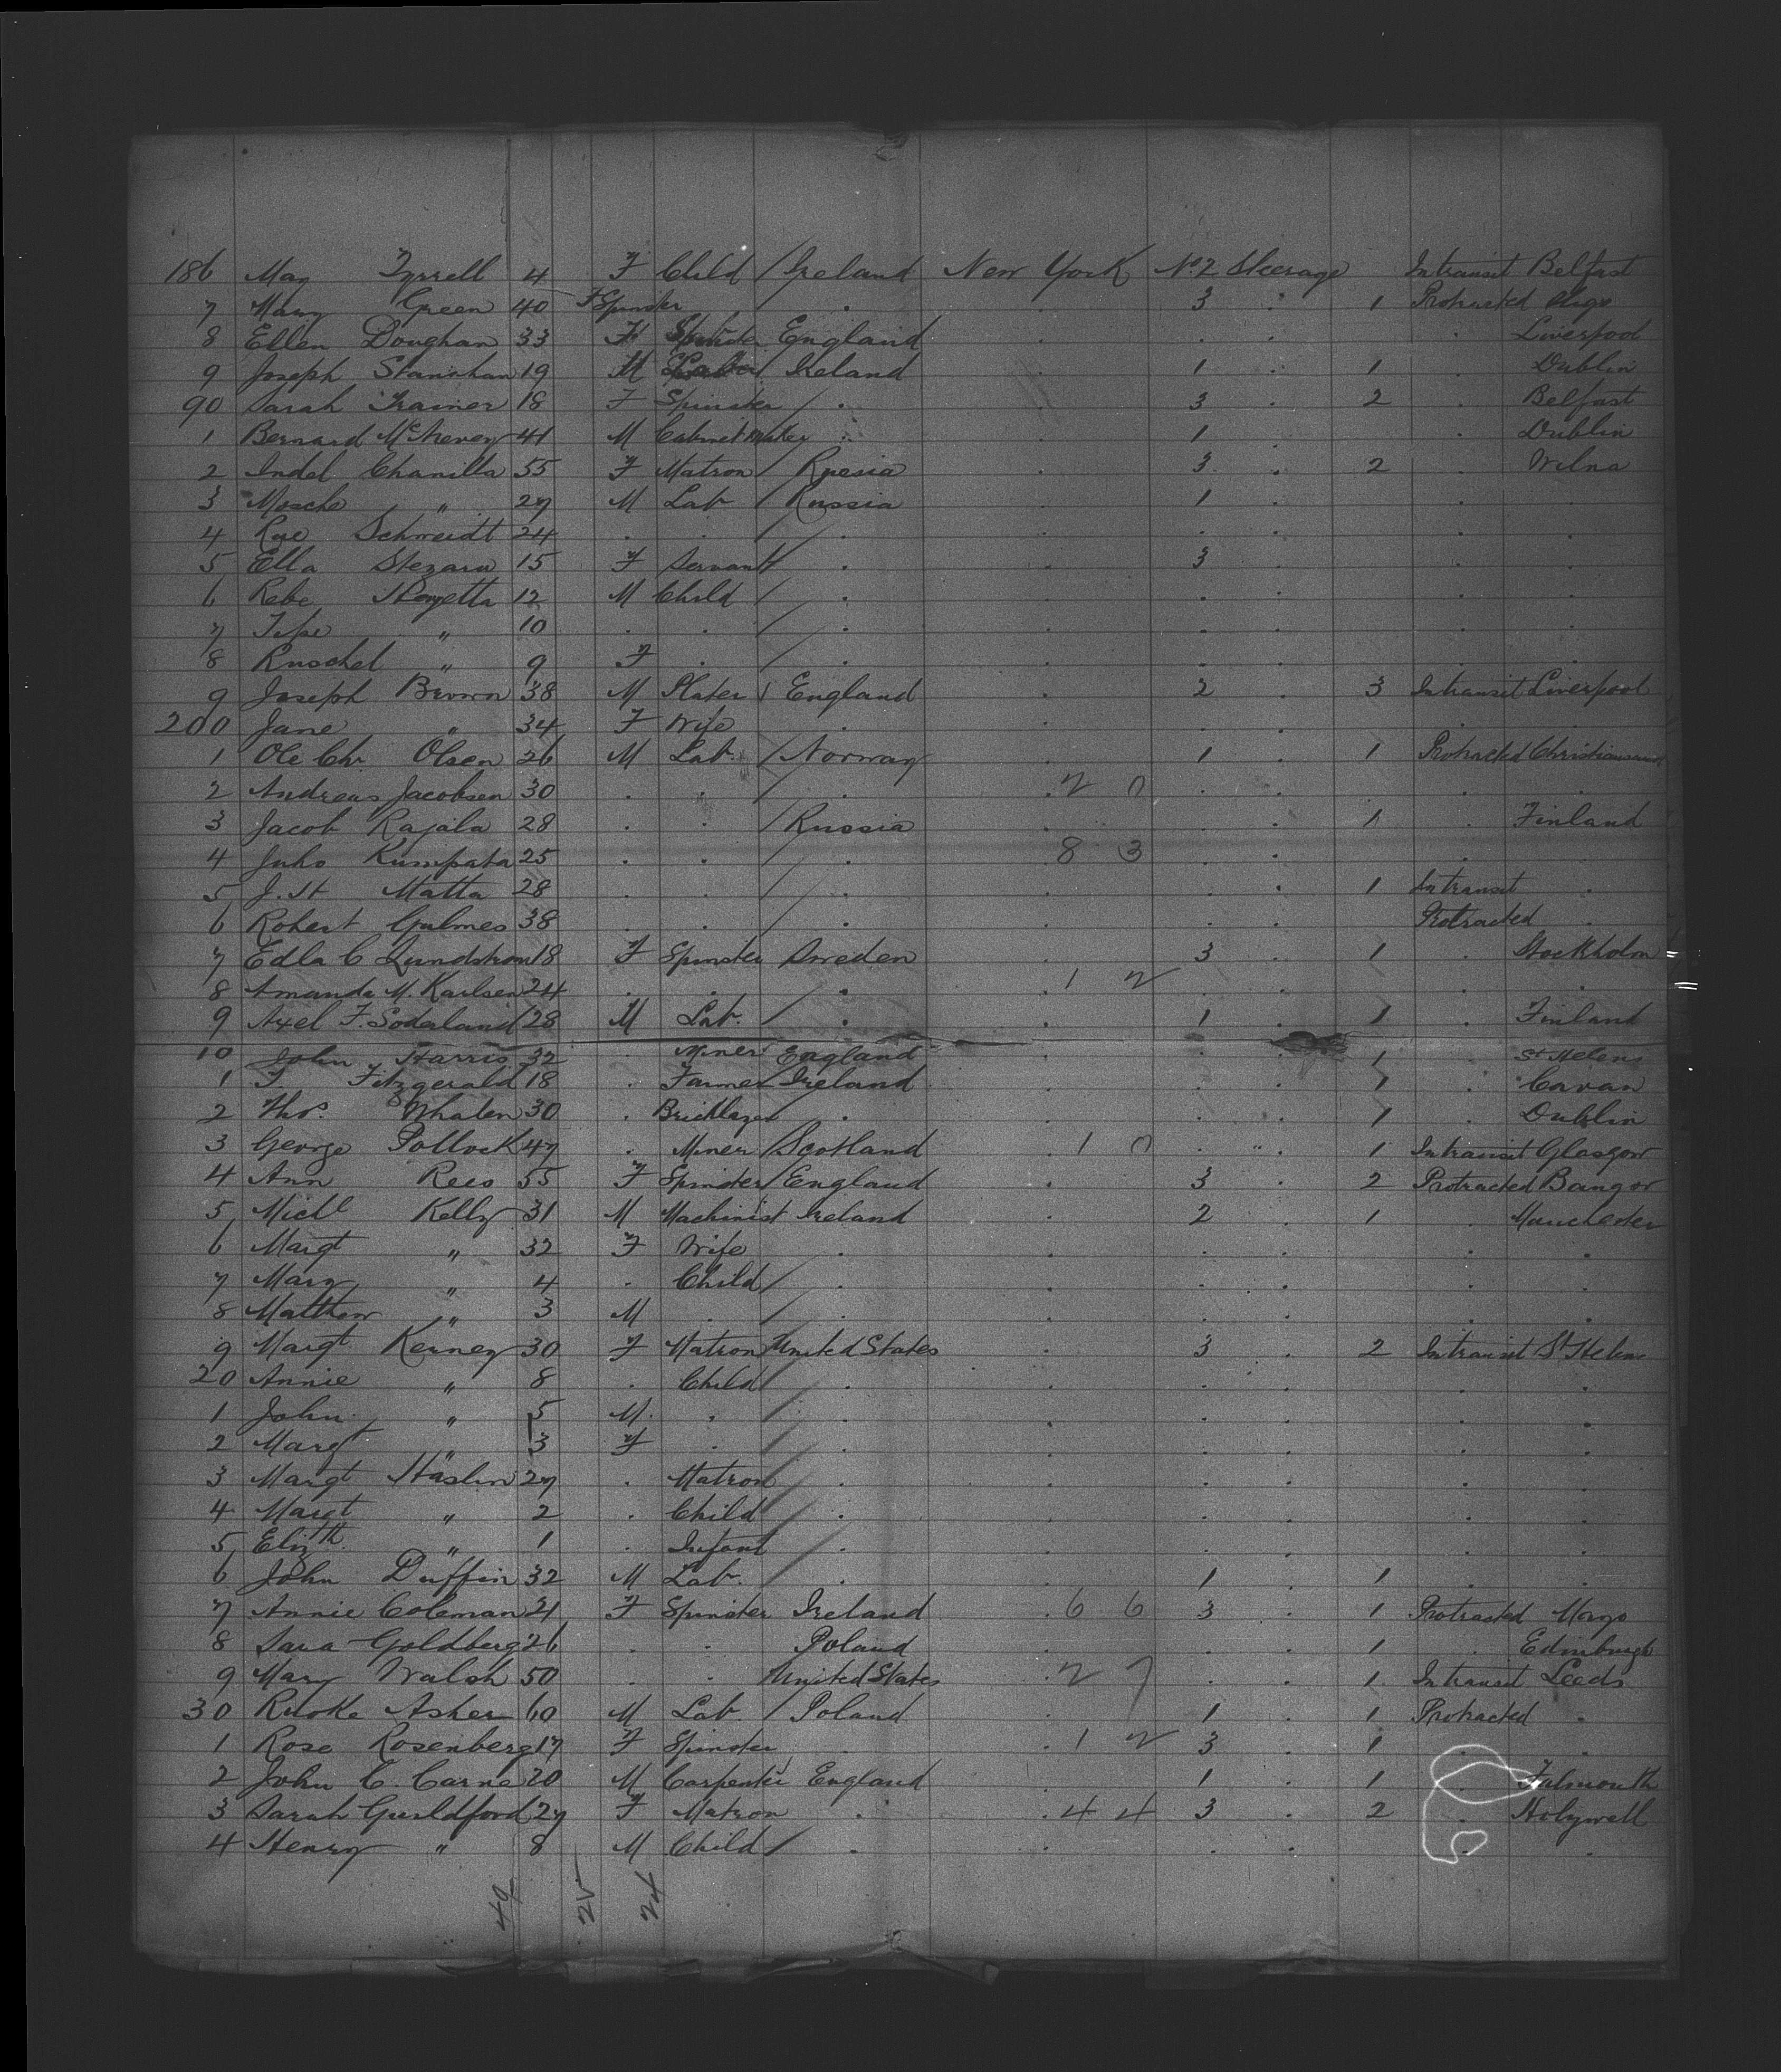 186 May Tyrrell 4 F Child / Ireland New York No 2 Steerage Intransit Belfast
7 Mary Green 40 F Spinster . . 3 . 1 Protracted Sligo
8 Ellen Doughan 33 F Spinster England . . . . Liverpool
9 Joseph 19 M Ireland . 1 . 1 . Dublin
90 Sarah Trainer 18 F Spinster / . . 3 . 2 . Belfast
1 Bernard 41 M Cabinet Maker . . 1 . . Dublin
2 Indel Chanilla 55 F Matron / Russia . 3 . 2 . Wilna
3 Mosche " 27 M Lab / Russia . 1 . . .
4 Schmeidt 24 . . / . . . . . .
5 Ella 15 F Servant / . . 3 . .
6 Rebe 12 M Child / . . . . . .
7 " 10 . . / . . . . . .
8 Ruschel " 9 F . / . . . . . .
9 Joseph Brown 38 M Plater England . 2 . 3 Intransit Liverpool
200 Jane " 34 F Wife . . . . . .
1 Ole Chr Olsen 26 M Lab / Norway . 1 . 1 Protracted
2 Andreas Jacobsen 30 . . / . . 2 0 . . . .
3 Jacob Rajala 28 . . / Russia . . . 1 . Finland
4 Juho Kumpata 25 . . / . . 8 3 . . . .
5 J. H Matta 28 . . / . . . . 1 Intransit .
6 Robert 38 . . / . . . . Protracted .
7 Edla C Lundstrom 18 F Spinster Sweden . 3 . 1 . Stockholm
8 Amanda M. Karlsen 24 . . . . 1 2 . . . .
9 Axel F. Soderland 28 M Lab. / . . 1 . 1 . Finland
10 John Harris 32 . Miner England . . . 1 . St Helens
1 J. Fitzgerald 18 . Farmer Ireland . . . 1 . Cavan
2 Thos. Whalen 30 . Bricklayer / . . . . 1 . Dublin
3 George Pollock 47 . Miner / Scotland 1 0 . . 1 Intransit Glasgow
4 Ann Rees 55 F Spinster / England . 3 . 2 Protracted Bangor
5 Michl Kelly 31 M Machinist Ireland . 2 . 1 . Manchester
6 Margt " 32 F Wife . . . . . .
7 Mary " 4 . Child / . . . . . .
8 Matthew " 3 M . / . . . . . .
9 Margt Kenney 30 F Matron United States . 3 . 2 Intransit St Helens
20 Annie " 8 . Child / . . . . . .
1 John " 5 M. . / . . . . . .
2 Margt " 3 F . / . . . . . .
3 Margt Haslin 27 . Matron . . . . . .
4 Margt " 2 . Child / . . . . . .
5 Elizth. " 1 . Infant / . . . . . .
6 John Duffin 32 M Lab. . . 1 . 1 . .
7 Annie Coleman 21 F Spinster Ireland . 6 6 3 . 1 Protracted Mayo
8 Sara Goldberg 26 . . Poland . . . 1 . Edinburgh
9 Mary Walsh 50 . . United States . 2 7 . . 1 Intransit Leeds
30 Asher 60 M Lab. / Poland . 1 . 1 Protracted .
1 Rose Rosenberg 17 F Spinster . . 1 2 3 . 1 . .
2 John C. Carne 20 M Carpenter England . 1 . 1 . Falmouth
3 Sarah Guildford 27 F Matron . . 4 4 3 . 2 . Holywell
4 Henry " 8 M Child / . . . . . .
49 25 24